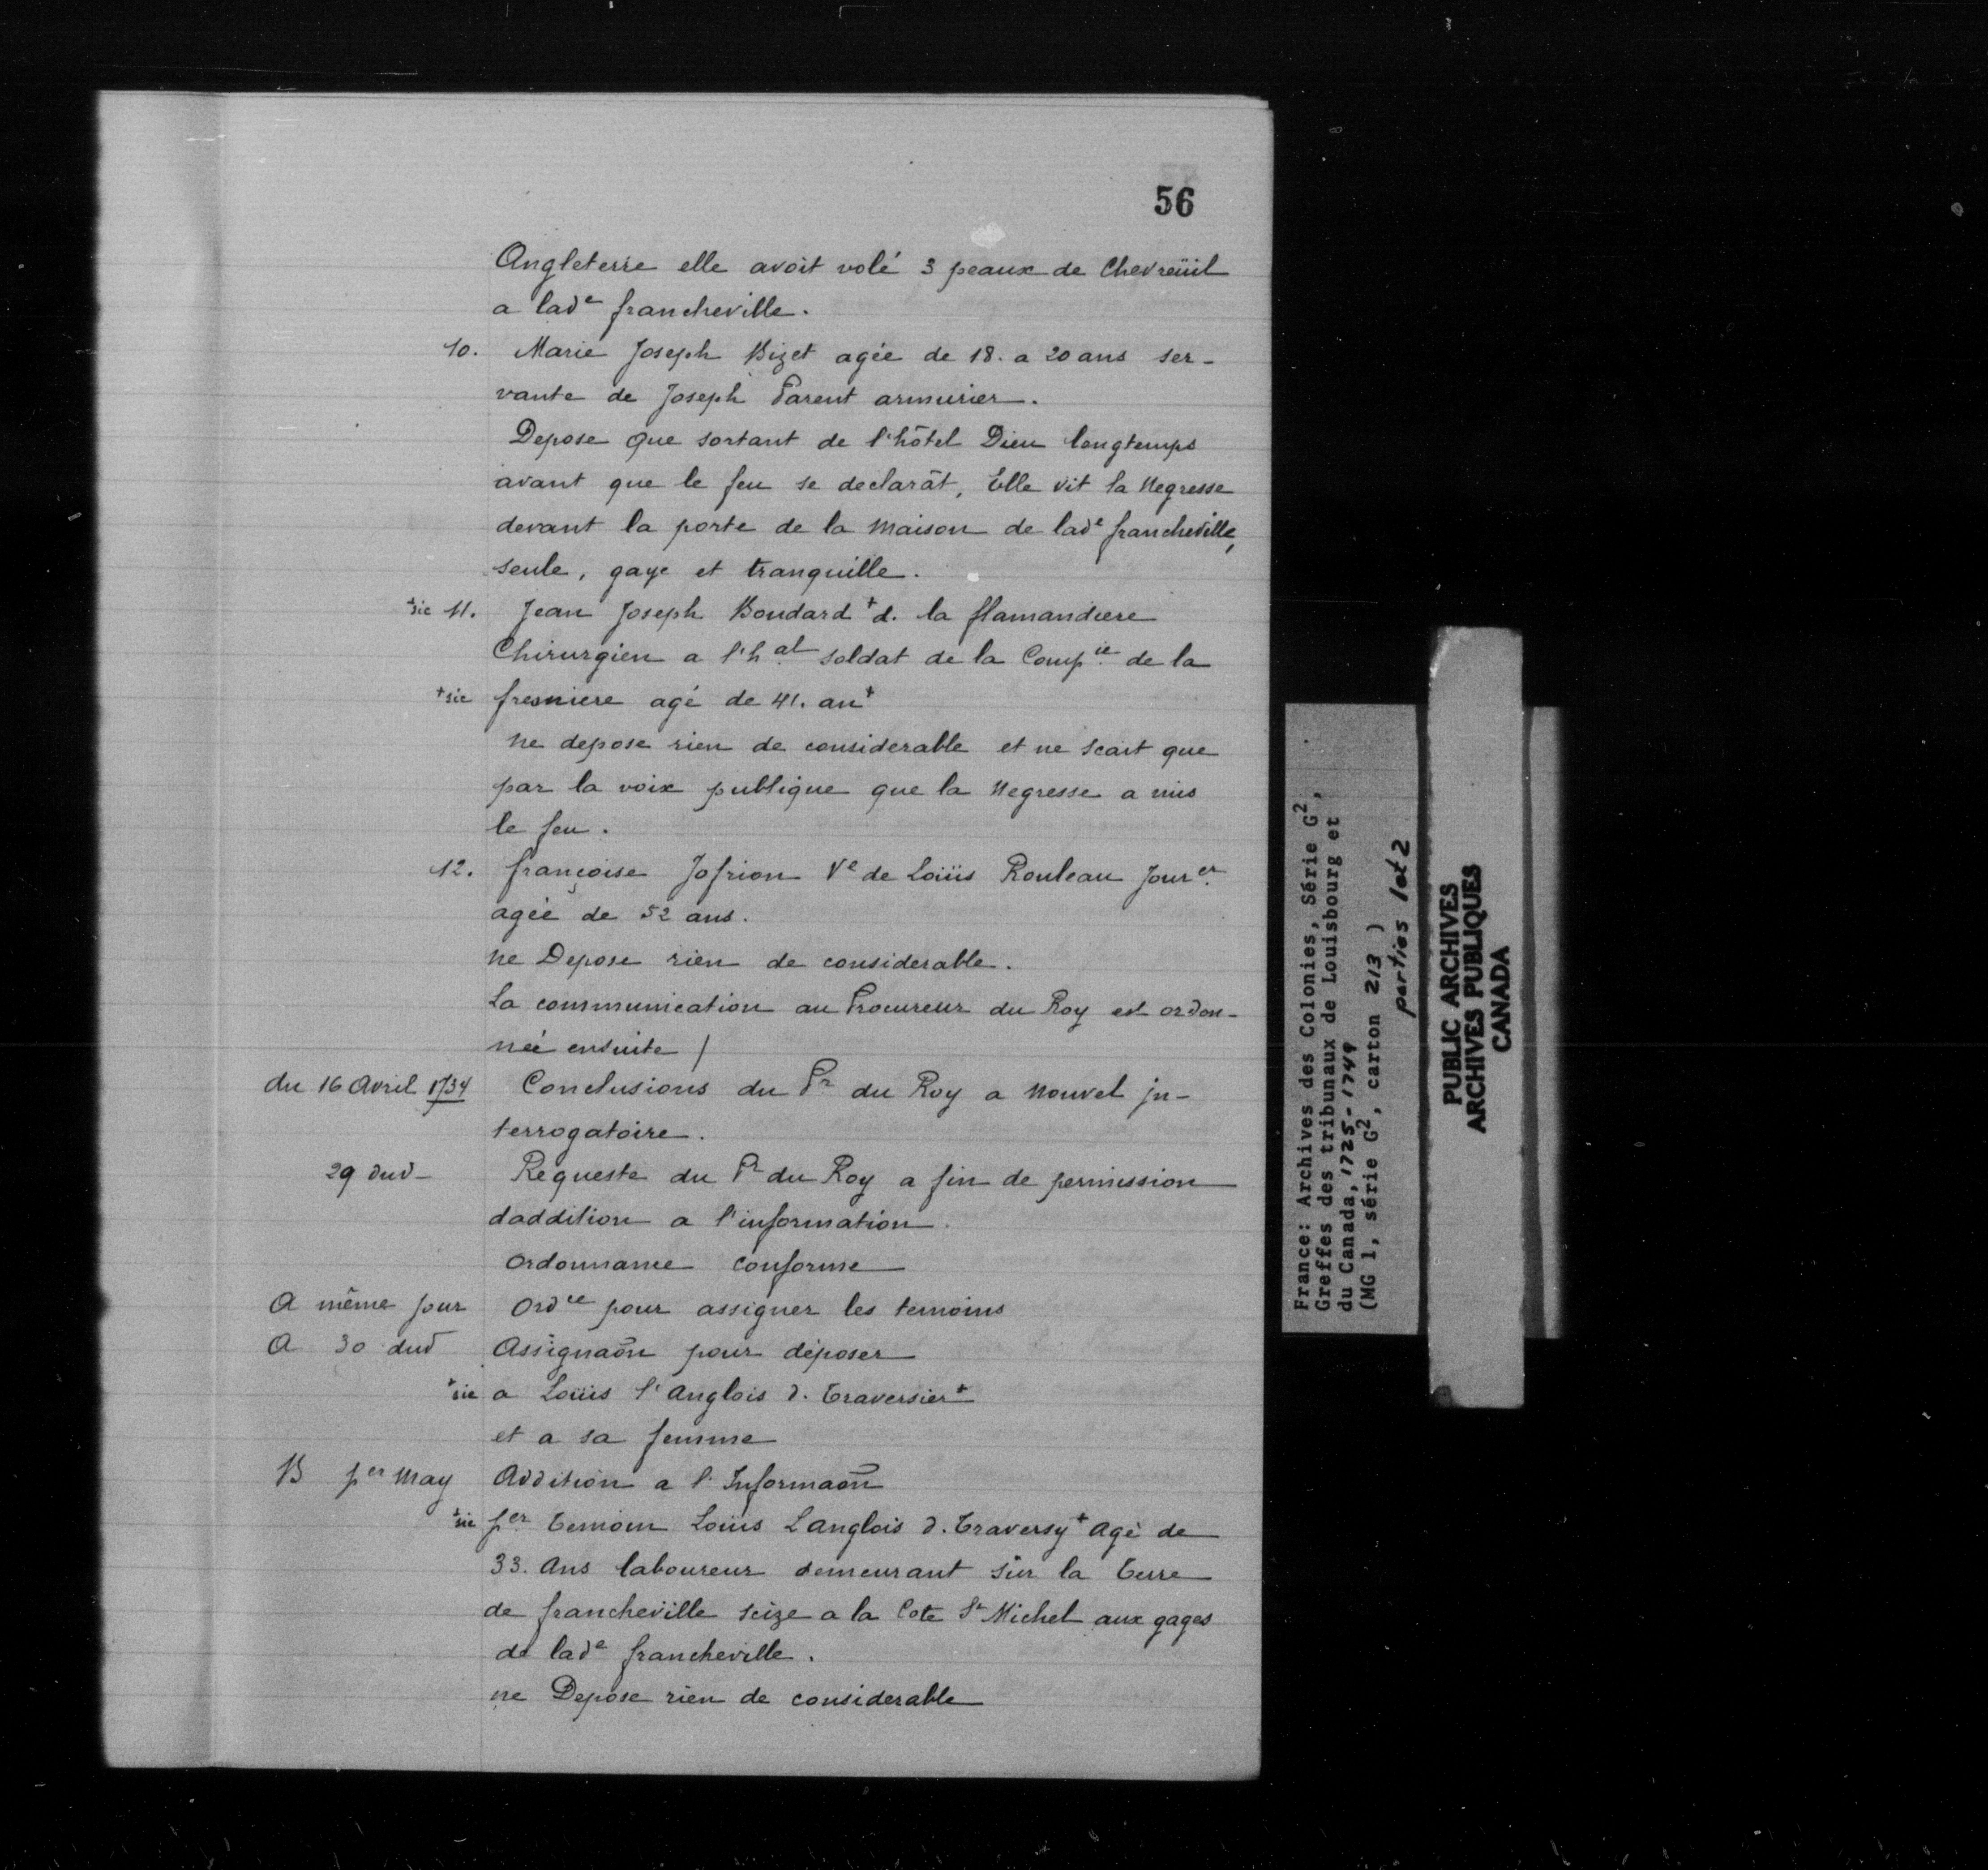 56
Angleterre elle avoit volé 3 peaux de Chevreüil
a lade francheville.
10. Marie Joseph Bizet agée de 18. a 20 ans ser-
vante de Joseph Parent armurier.
Depose que sortant de l'hôtel Dieu longtemps
avant que le feu se declarât, Elle vit la Negresse
devant la porte de la Maison de lade francheville,
seule, gaye et tranquille.
+sic 11. Jean Joseph Boudard + d. la flamandiere
Chirurgien a l'hal soldat de la Compie de la
+sic fresniere agé de 41. an+
ne depose rien de considerable et ne scait que
par la voix publique que la Negresse a mis
le feu.
12. françoise Jofrion Ve de Loüis Rouleau Jourer
agée de 52 ans.
ne Depose rien de considerable.
La communication au Procureur du Roy est ordon-
née ensuite /
du 16 Avril 1734 Conclusions du Pr du Roy a Nouvel jn-
terrogatoire.
29 dud- Requeste du Pr du Roy a fin de permission
daddition a l'information.
Ordonnance conforme
A même jour Ordce pour assigner les temoins
A 30 dud Assignaōn pour déposer
+sic a Loüis l'Anglois d. Traversier+
et a sa femme
B per May Addition a l'Informaōn
+sic per Temoin Loüis Langlois d. Traversy+ Agé de
33. Ans laboureur demeurant sur la Terre
de francheville seize a la Cote St Michel aux gages
de lade francheville.
ne Depose rien de considerable
France: Archives des Colonies, Série G2,
Greffes des tribunaux de Louisbourg et
du Canada, 1725-1749
(MG 1, série G2, carton 213 )
parties 1et 2
PUBLIC ARCHIVES
ARCHIVES PUBLIQUES
CANADA